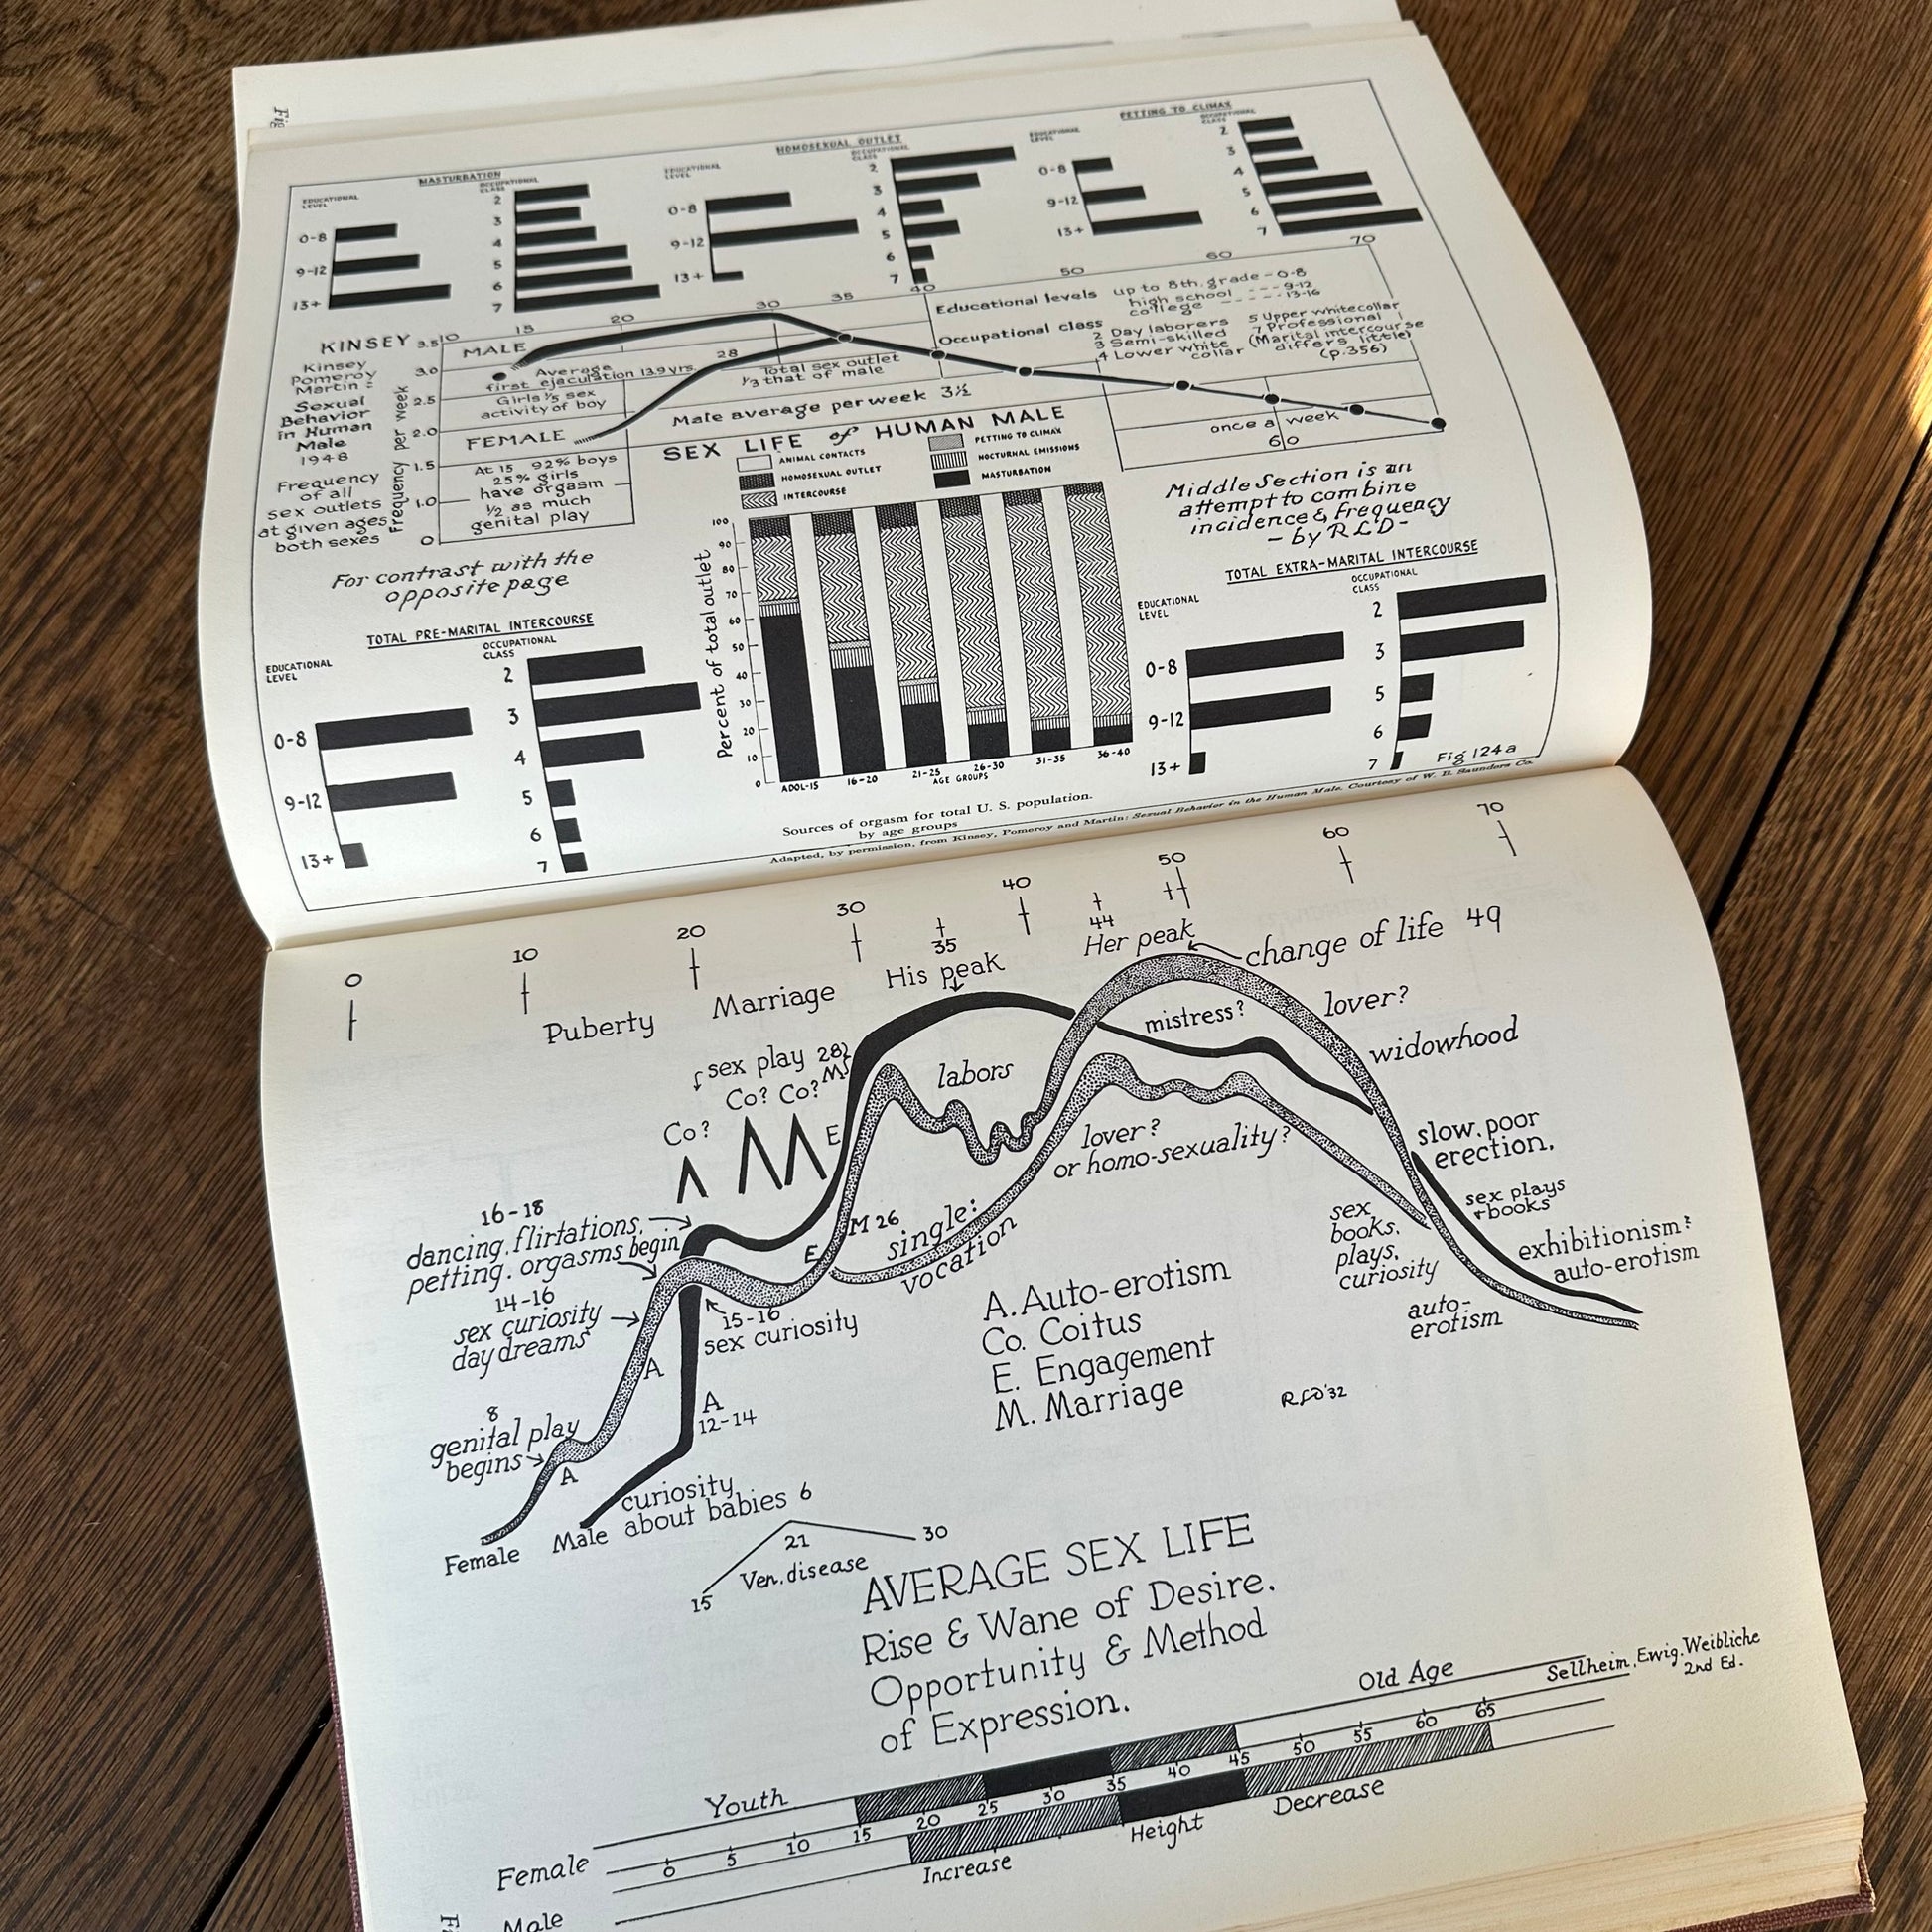 Fig
MASTURBATION
EDUCATIONAL
LEVEL
0-8
9-12
13+
OCCUPATIONAL
CLASS
2
3
4
5
6
7
HOMOSEXUAL OUTLET
EDUCATIONAL
LEVEL
0-8
9-12
13+
OCCUPATIONAL
CLASS
2
3
4
5
6
7
PETTING TO CLIMAX
EDUCATIONAL
LEVEL
0-8
9-12
13+
OCCUPATIONAL
CLASS
2
3
4
5
6
7
KINSEY
Kinsey
Pomeroy
Martin =
Sexual
Behavior
in Human
Male
1948
Frequency
of all
sex outlets
at given ages
both sexes
Frequency per week
3.5
3.0
2.5
2.0
1.5
1.0
0
10 15 20 30 35 40 50 60 70
MALE
Average
first ejaculation 13.9 yrs.
Girls 1/5 sex
activity of boy
FEMALE
At 15 92% boys
25% girls
have orgasm
1/2 as much
genital play
28
Total sex outlet
1/3 that of male
Male average per week 3½
Educational levels up to 8th. grade - 0-8
high school --- 9-12
college ---- 13-16
Occupational class
2 Day laborers
3 Semi-skilled
4 Lower white
collar
5 Upper whitecollar
7 Professional
(Marital intercourse
differs little)
(p.356)
once a week
60
SEX LIFE of HUMAN MALE
ANIMAL CONTACTS
HOMOSEXUAL OUTLET
INTERCOURSE
PETTING TO CLIMAX
NOCTURNAL EMISSIONS
MASTURBATION
Middle Section is an
attempt to combine
incidence & frequency
- by RLD -
For contrast with the
opposite page
TOTAL PRE-MARITAL INTERCOURSE
EDUCATIONAL
LEVEL
0-8
9-12
13+
OCCUPATIONAL
CLASS
2
3
4
5
6
7
Percent of total outlet
100
90
80
70
60
50
40
30
20
10
0
ADOL-15 16-20 21-25 26-30 31-35 36-40
AGE GROUPS
TOTAL EXTRA-MARITAL INTERCOURSE
EDUCATIONAL
LEVEL
0-8
9-12
13+
OCCUPATIONAL
CLASS
2
3
5
6
7
Fig 124a
Sources of orgasm for total U. S. population.
by age groups
Adapted, by permission, from Kinsey, Pomeroy and Martin: Sexual Behavior in the Human Male. Courtesy of W. B. Saunders Co.
0 10 20 30 40 50 60 70
35
44
Puberty
Marriage
His peak
Her peak
change of life 49
lover?
mistress?
widowhood
sex play 28
M
Co? Co?
Co?
E
labors
lover?
or homo-sexuality?
slow, poor
erection,
sex plays
+ books
exhibitionism?
auto-erotism
sex
books,
plays,
curiosity
auto-
erotism
16-18
dancing, flirtations,
petting. orgasms begin
14-16
sex curiosity
day dreams
15-16
sex curiosity
E
M 26
single:
vocation
A
A
12-14
8
genital play
begins
A
curiosity
about babies 6
Female
Male
A. Auto-erotism
Co. Coitus
E. Engagement
M. Marriage
RLD'32
15
21
30
Ven. disease
AVERAGE SEX LIFE
Rise & Wane of Desire.
Opportunity & Method
of Expression.
Old Age
Sellheim, Ewig. Weibliche
2nd Ed.
Youth
Female
0 5 10 15 20 25 30 35 40 45 50 55 60 65
Increase
Height
Decrease
Male